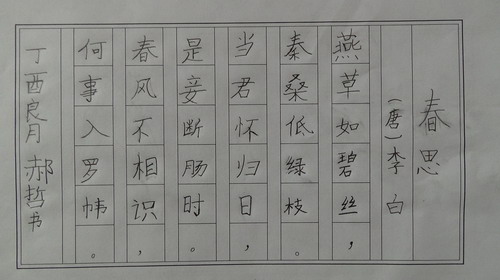 春思
(唐)李白
燕草如碧丝，
秦桑低绿枝。
当君怀归日，
是妾断肠时。
春风不相识，
何事入罗帏。
丁酉良月郝哲书